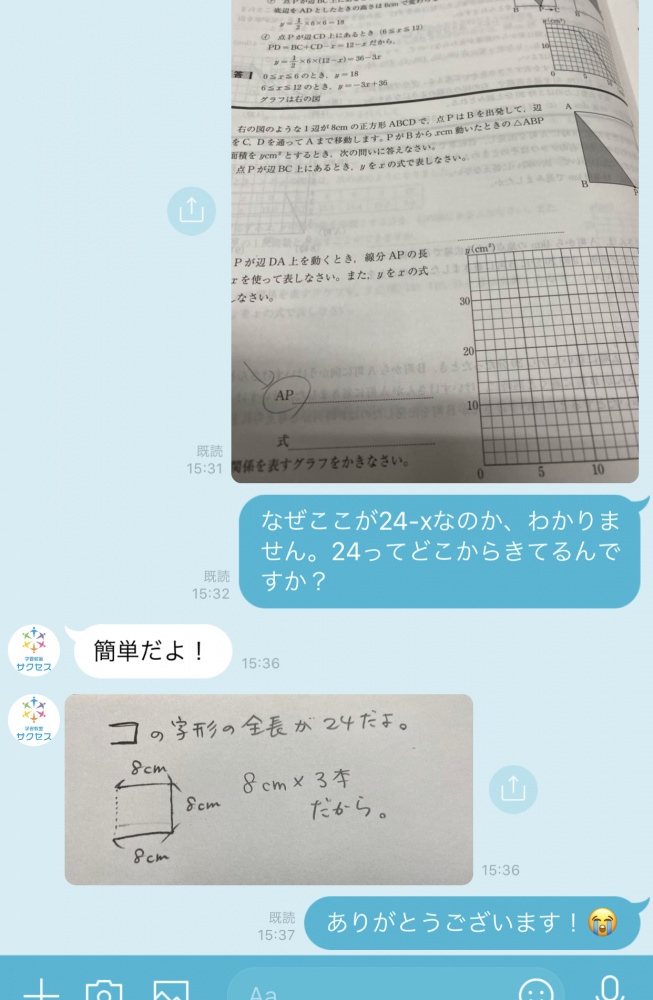 底辺を AD としたときの高さは 6cm で変わ
y = 1/2 ×6×6=18
点 P が辺 CD 上にあるとき (6≦x≦12)
PD=BC+CD-x=12-x だから,
y = 1/2 ×6×(12-x)=36-3x
答 0≦x≦6 のとき, y=18
6≦x≦12 のとき, y=-3x+36
グラフは右の図
y(cm²)
10
0
5
10
右の図のような1辺が8cmの正方形ABCDで, 点PはBを出発して, 辺
をC, Dを通ってAまで移動します。PがBからxcm動いたときの△ABP
面積をycm²とするとき, 次の問いに答えなさい。
点Pが辺BC上にあるとき, yをxの式で表しなさい。
A
B
P
Pが辺DA上を動くとき, 線分APの長
xを使って表しなさい。また, yをxの式
しなさい。
AP
式
関係を表すグラフをかきなさい。
y(cm²)
30
20
10
0
5
10
既読
15:31
なぜここが24-xなのか、わかりま
せん。24ってどこからきてるんで
すか？
既読
15:32
学習教室
サクセス
簡単だよ！
15:36
学習教室
サクセス
コの字形の全長が24だよ。
8cm
8cm
8cm
8cm×3本
だから。
15:36
ありがとうございます！😭
既読
15:37
Aa